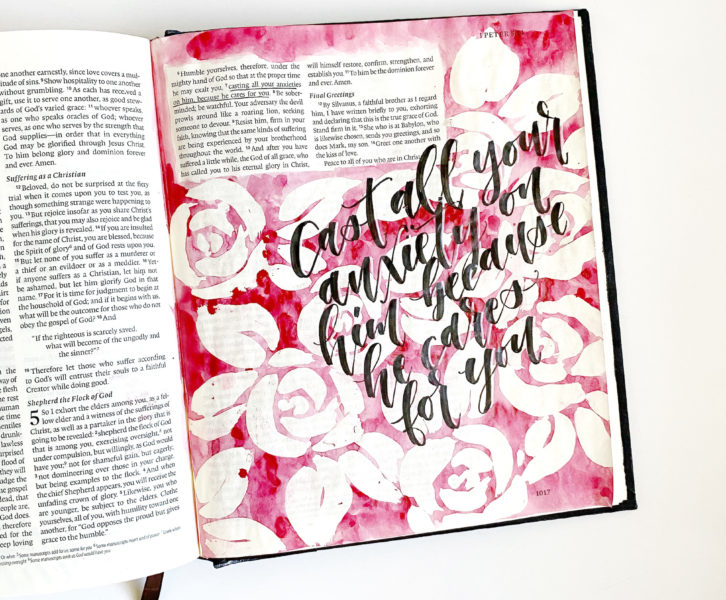 one another earnestly, since love covers a mul-
titude of sins. 9 Show hospitality to one another
without grumbling. 10 As each has received a
gift, use it to serve one another, as good stew-
ards of God's varied grace: 11 whoever speaks,
as one who speaks oracles of God; whoever
serves, as one who serves by the strength that
God supplies—in order that in everything
God may be glorified through Jesus Christ.
To him belong glory and dominion forever
and ever. Amen.
Suffering as a Christian
12 Beloved, do not be surprised at the fiery
trial when it comes upon you to test you, as
though something strange were happening to
you. 13 But rejoice insofar as you share Christ's
sufferings, that you may also rejoice and be glad
when his glory is revealed. 14 If you are insulted
for the name of Christ, you are blessed, because
the Spirit of glory and of God rests upon you.
15 But let none of you suffer as a murderer or
a thief or an evildoer or as a meddler. 16 Yet
if anyone suffers as a Christian, let him not
be ashamed, but let him glorify God in that
name. 17 For it is time for judgment to begin at
the household of God; and if it begins with us,
what will be the outcome for those who do not
obey the gospel of God? 18 And
"If the righteous is scarcely saved,
what will become of the ungodly and
the sinner?"
19 Therefore let those who suffer according
to God's will entrust their souls to a faithful
Creator while doing good.
Shepherd the Flock of God
5 So I exhort the elders among you, as a fel-
low elder and a witness of the sufferings of
Christ, as well as a partaker in the glory that is
going to be revealed: 2 shepherd the flock of God
that is among you, exercising oversight, not
under compulsion, but willingly, as God would
have you; not for shameful gain, but eagerly;
3 not domineering over those in your charge,
but being examples to the flock. 4 And when
the chief Shepherd appears, you will receive the
unfading crown of glory. 5 Likewise, you who
are younger, be subject to the elders. Clothe
yourselves, all of you, with humility toward one
another, for "God opposes the proud but gives
grace to the humble."
1 PETER
6 Humble yourselves, therefore, under the
mighty hand of God so that at the proper time
he may exalt you, 7 casting all your anxieties
on him, because he cares for you. 8 Be sober-
minded; be watchful. Your adversary the devil
prowls around like a roaring lion, seeking
someone to devour. 9 Resist him, firm in your
faith, knowing that the same kinds of suffering
are being experienced by your brotherhood
throughout the world. 10 And after you have
suffered a little while, the God of all grace, who
has called you to his eternal glory in Christ,
will himself restore, confirm, strengthen, and
establish you. 11 To him be the dominion forever
and ever. Amen.
Final Greetings
12 By Silvanus, a faithful brother as I regard
him, I have written briefly to you, exhorting
and declaring that this is the true grace of God.
Stand firm in it. 13 She who is at Babylon, who
is likewise chosen, sends you greetings, and so
does Mark, my son. 14 Greet one another with
the kiss of love.
Peace to all of you who are in Christ
Cast all your
anxiety on
him because
he cares
for you
1017